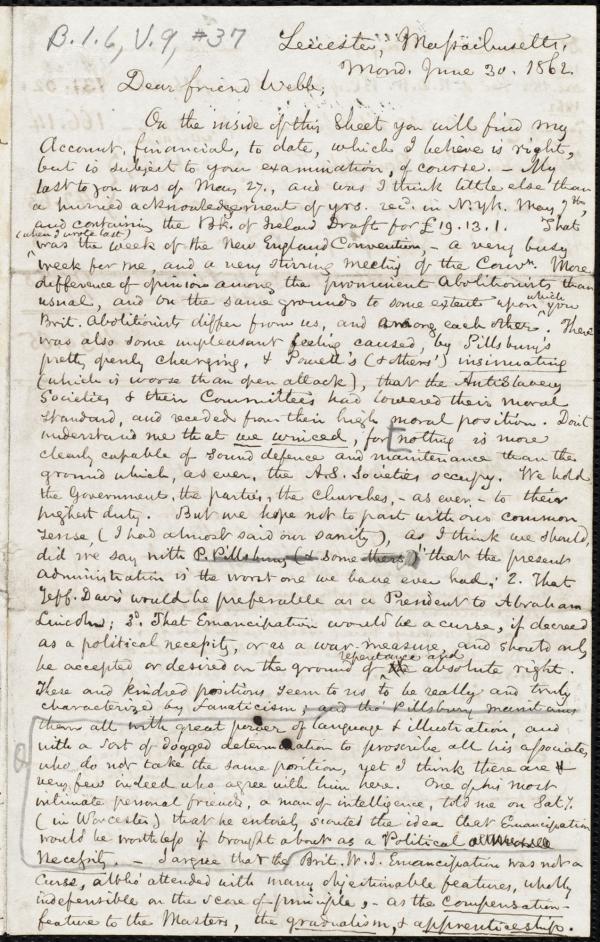 B.1.6, V.9, #37
Leicester, Massachusetts,
Mond. June 30. 1862.
Dear friend Webb,
On the inside of this sheet you will find my
Account, financial, to date, which I believe is right,
but is subject to your examination, of course. – My
last to you was of May 27., and was I think little else than
a hurried acknowledgement of yrs. recd. in N. Yk. May 9th,
and containing the Bk. of Ireland Draft for £19.13.1. That
(when I wrote last)
was the week of the New England Convention, – a very busy
week for me, and a very stirring meeting of the Convn. More
difference of opinion among the prominent Abolitionists than
usual, and on the same grounds to some extent upon which you
Brit. Abolitionists differ from us, and among each other. There
was also some unpleasant feeling caused, by Pillsbury's
pretty openly charging, & Powell's (& others') insinuating
(which is worse than open attack), that the AntiSlavery
Societies & their Committees had lowered their moral
standard, and receded from their high moral position. Don't
understand me that we winced, for [nothing is more
clearly capable of sound defence and maintenance than the
ground which, as ever, the A.S. Societies occupy. We hold
the Government, the parties, the churches, – as ever – to their
highest duty. But we hope not to part with our common
sense, (I had almost said our sanity), as I think we should,
did we say with P. Pillsbury (& some others) that the present
administration is the worst one we have ever had; 2. That
Jeff. Davis would be preferable as a President to Abraham
Lincoln; 3d. That Emancipation would be a curse, if decreed
as a political necessity, or as a war-measure, and should only
be accepted or desired on the ground of repentance and absolute right.
These and kindred positions seem to us to be really and truly
characterized by fanaticism; and tho' Pillsbury maintains
them all with great power of language & illustration, and
with a sort of dogged determination to proscribe all his associates
who do not take the same position, yet I think there are
very few indeed who agree with him here. One of his most
intimate personal friends, a man of intelligence, told me on Saty.
(in Worcester) that he entirely scouted the idea that Emancipation
would be worthless if brought about as a Political
Necessity. – I agree that the Brit. W.I. Emancipation was not a
curse, altho' attended with many objectionable features, wholly
indefensible on the score of principle, – as the compensation-
feature to the Masters, the gradualism, & apprenticeship.